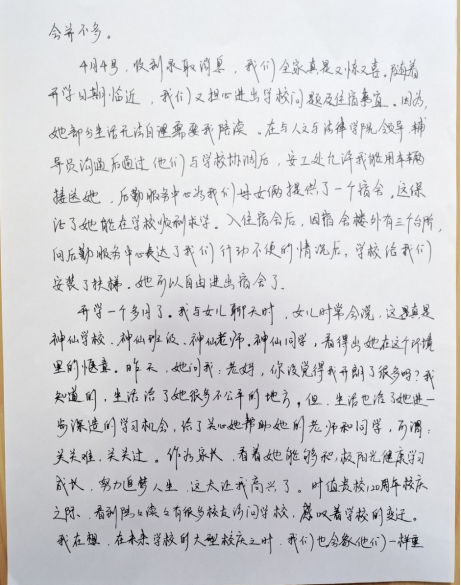 会并不多。
4月4号，收到录取消息，我们全家真是又惊又喜。随着
开学日期临近，我们又担心进出学校问题及住宿事宜。因为，
她部分生活无法自理需要我陪读。在与人文与法律学院领导、辅
导员沟通后通过他们与学校协调后，安工处允许我能用车辆
接送她，后勤服务中心为我们母女俩提供了一个宿舍，这保
证了她能在学校顺利求学。入住宿舍后，因宿舍楼外有三个台阶，
向后勤服务中心表达了我们行动不便的情况后，学校给我们
安装了扶梯。她可以自由进出宿舍了。
开学一个多月了。我与女儿聊天时，女儿时常会说，这里真是
神仙学校、神仙班级、神仙老师、神仙同学，看得出她在这个环境
里的惬意。昨天，她问我：老妈，你没觉得我开朗了很多吗？我
知道的，生活给了她很多不公平的地方。但，生活也给了她进一
步深造的学习机会，给了关心她帮助她的老师和同学，所谓：
关关难，关关过。作为家长，看着她能够和校阳光健康学习
成长，努力追梦人生，这太让我高兴了。时值贵校120周年校庆
之际，看到陆陆续续有很多校友访问学校，感叹着学校的变迁。
我在想，在未来学校的大型校庆之时，我们也会象他们一样重